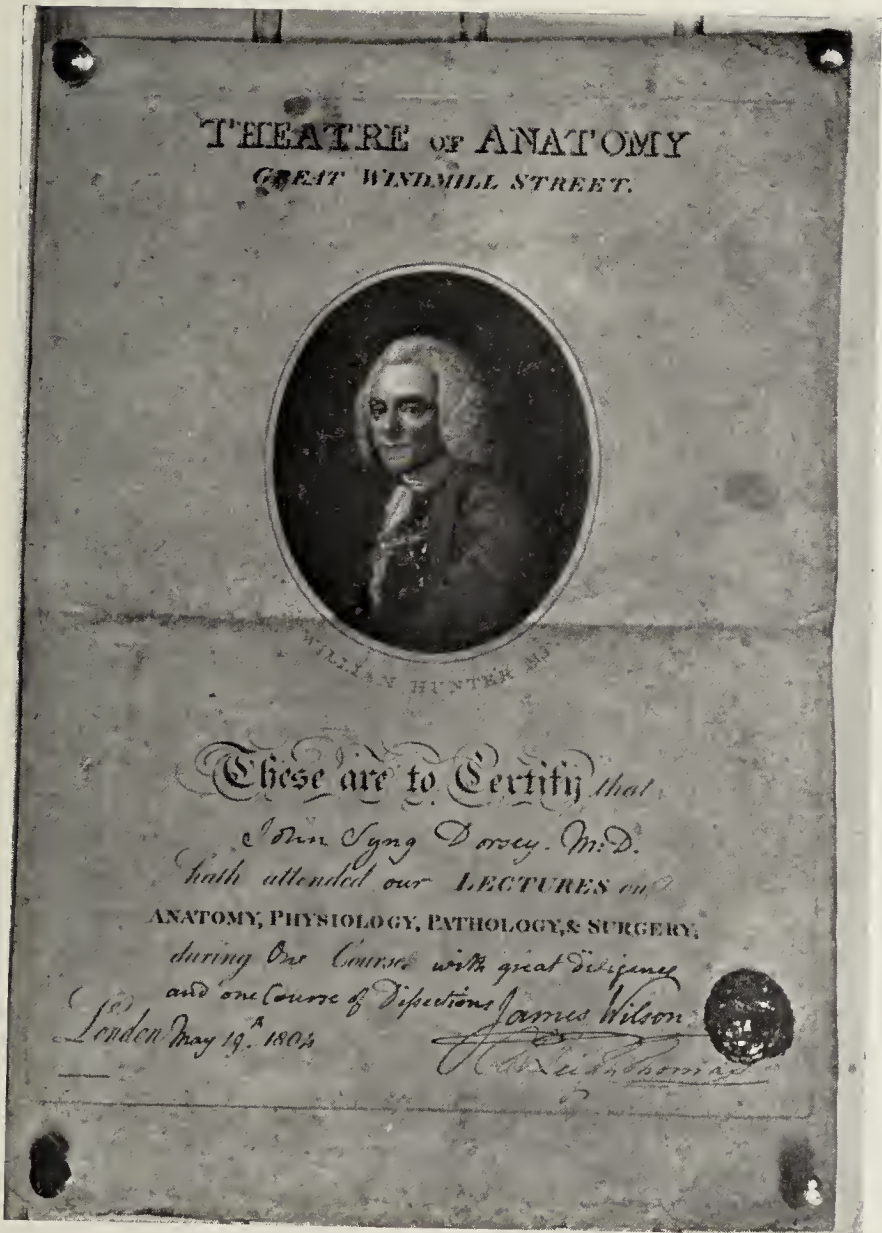 THEATRE OF ANATOMY
GREAT WINDMILL STREET.
WILLIAM HUNTER M.D.
These are to Certify that
John Syng Dorsey. M.D.
hath attended our LECTURES on
ANATOMY, PHYSIOLOGY, PATHOLOGY, & SURGERY,
during One Course with great diligence
and one Course of Dissections
James Wilson
London May 19th 1804
Thomas